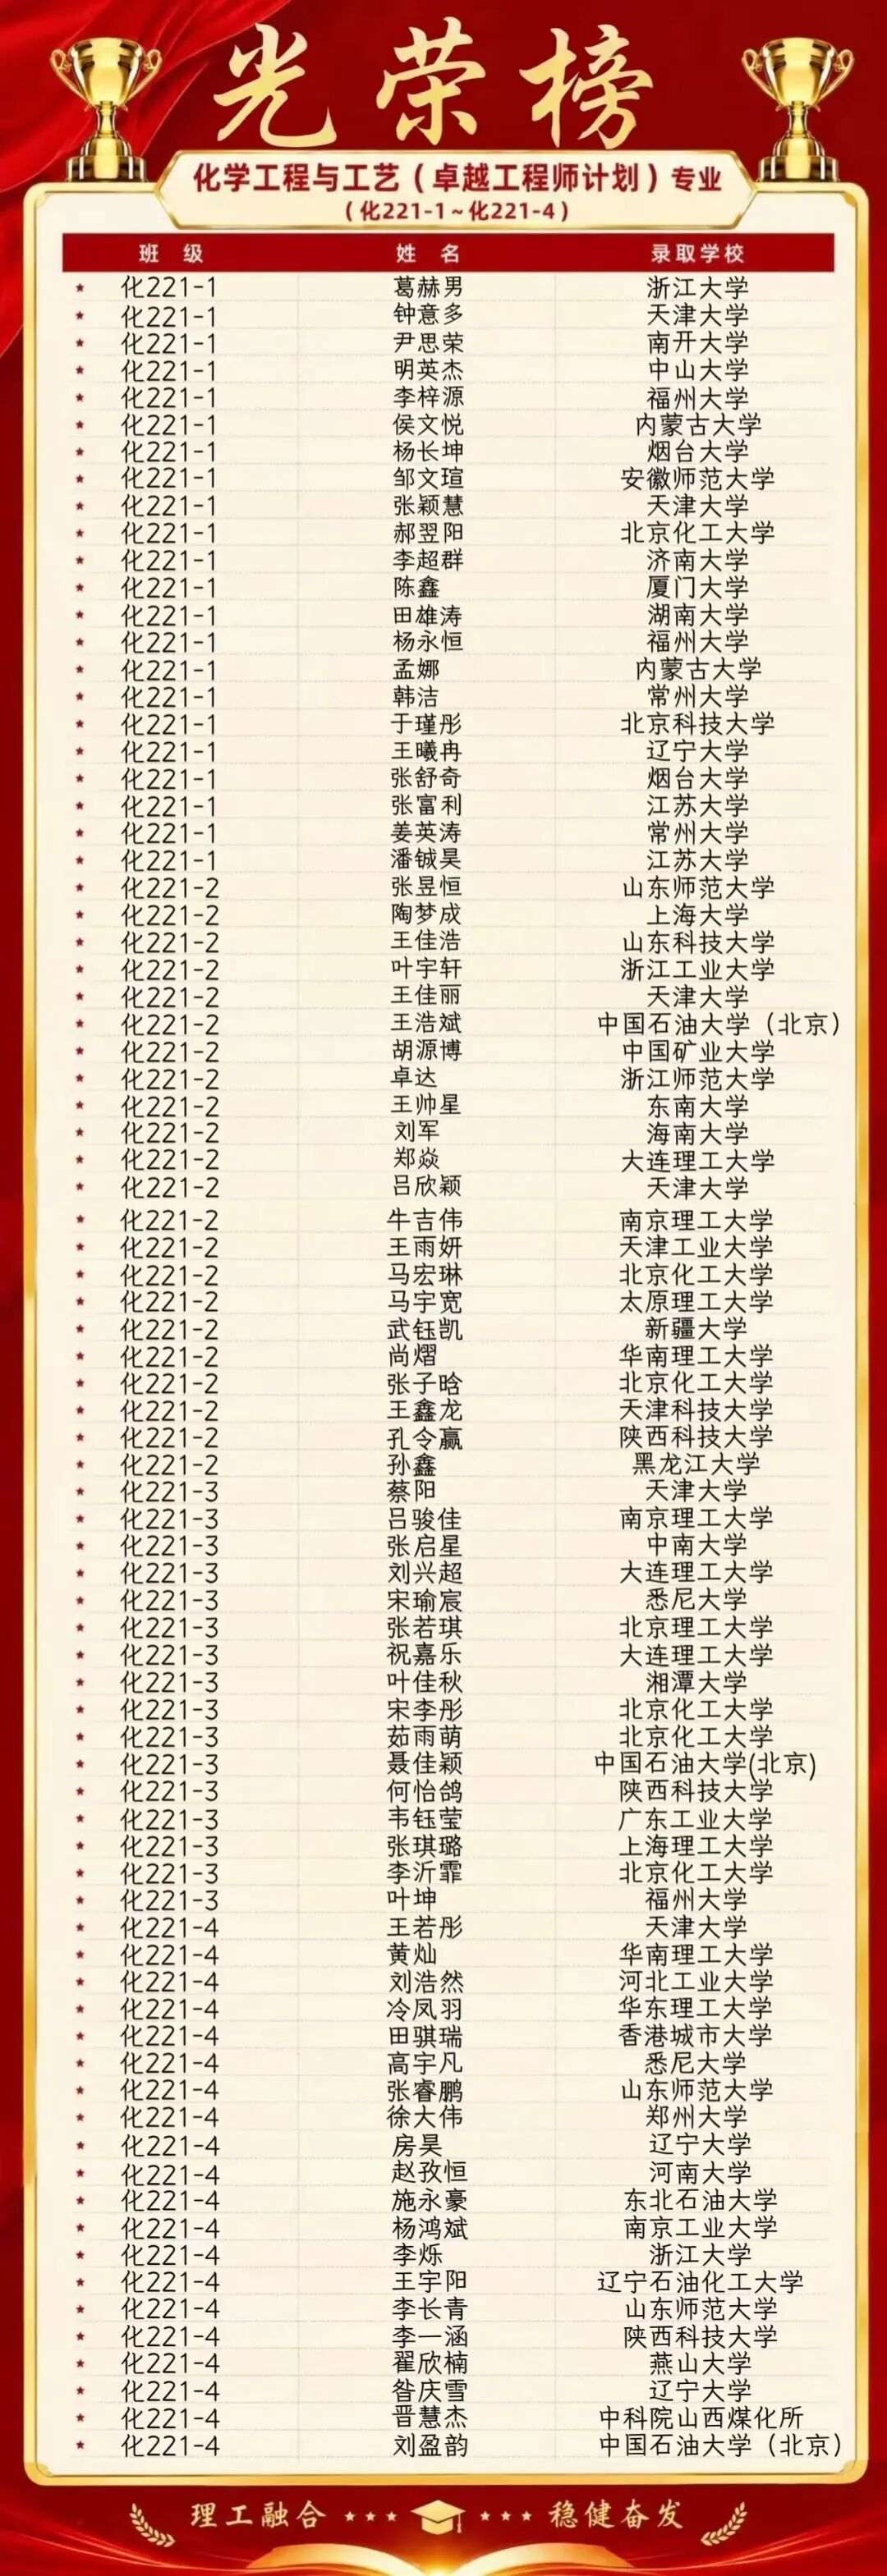 光荣榜
化学工程与工艺（卓越工程师计划）专业
（化221-1~化221-4）
班 级 姓 名 录取学校
化221-1 葛赫男 浙江大学
化221-1 钟意多 天津大学
化221-1 尹思荣 南开大学
化221-1 明英杰 中山大学
化221-1 李梓源 福州大学
化221-1 侯文悦 内蒙古大学
化221-1 杨长坤 烟台大学
化221-1 邹文瑄 安徽师范大学
化221-1 张颖慧 天津大学
化221-1 郝翌阳 北京化工大学
化221-1 李超群 济南大学
化221-1 陈鑫 厦门大学
化221-1 田雄涛 湖南大学
化221-1 杨永恒 福州大学
化221-1 孟娜 内蒙古大学
化221-1 韩洁 常州大学
化221-1 于瑾彤 北京科技大学
化221-1 王曦冉 辽宁大学
化221-1 张舒奇 烟台大学
化221-1 张富利 江苏大学
化221-1 姜英涛 常州大学
化221-1 潘铖昊 江苏大学
化221-2 张昱恒 山东师范大学
化221-2 陶梦成 上海大学
化221-2 王佳浩 山东科技大学
化221-2 叶宇轩 浙江工业大学
化221-2 王佳丽 天津大学
化221-2 王浩斌 中国石油大学（北京）
化221-2 胡源博 中国矿业大学
化221-2 卓达 浙江师范大学
化221-2 王帅星 东南大学
化221-2 刘军 海南大学
化221-2 郑焱 大连理工大学
化221-2 吕欣颖 天津大学
化221-2 牛吉伟 南京理工大学
化221-2 王雨妍 天津工业大学
化221-2 马宏琳 北京化工大学
化221-2 马宇宽 太原理工大学
化221-2 武钰凯 新疆大学
化221-2 尚熠 华南理工大学
化221-2 张子晗 北京化工大学
化221-2 王鑫龙 天津科技大学
化221-2 孔令赢 陕西科技大学
化221-2 孙鑫 黑龙江大学
化221-3 蔡阳 天津大学
化221-3 吕骏佳 南京理工大学
化221-3 张启星 中南大学
化221-3 刘兴超 大连理工大学
化221-3 宋瑜宸 悉尼大学
化221-3 张若琪 北京理工大学
化221-3 祝嘉乐 大连理工大学
化221-3 叶佳秋 湘潭大学
化221-3 宋李彤 北京化工大学
化221-3 茹雨萌 北京化工大学
化221-3 聂佳颖 中国石油大学(北京)
化221-3 何怡鸽 陕西科技大学
化221-3 韦钰莹 广东工业大学
化221-3 张琪璐 上海理工大学
化221-3 李沂霏 北京化工大学
化221-3 叶坤 福州大学
化221-4 王若彤 天津大学
化221-4 黄灿 华南理工大学
化221-4 刘浩然 河北工业大学
化221-4 冷凤羽 华东理工大学
化221-4 田骐瑞 香港城市大学
化221-4 高宇凡 悉尼大学
化221-4 张睿鹏 山东师范大学
化221-4 徐大伟 郑州大学
化221-4 房昊 辽宁大学
化221-4 赵孜恒 河南大学
化221-4 施永豪 东北石油大学
化221-4 杨鸿斌 南京工业大学
化221-4 李烁 浙江大学
化221-4 王宇阳 辽宁石油化工大学
化221-4 李长青 山东师范大学
化221-4 李一涵 陕西科技大学
化221-4 翟欣楠 燕山大学
化221-4 昝庆雪 辽宁大学
化221-4 晋慧杰 中科院山西煤化所
化221-4 刘盈韵 中国石油大学（北京）
理工融合 稳健奋发